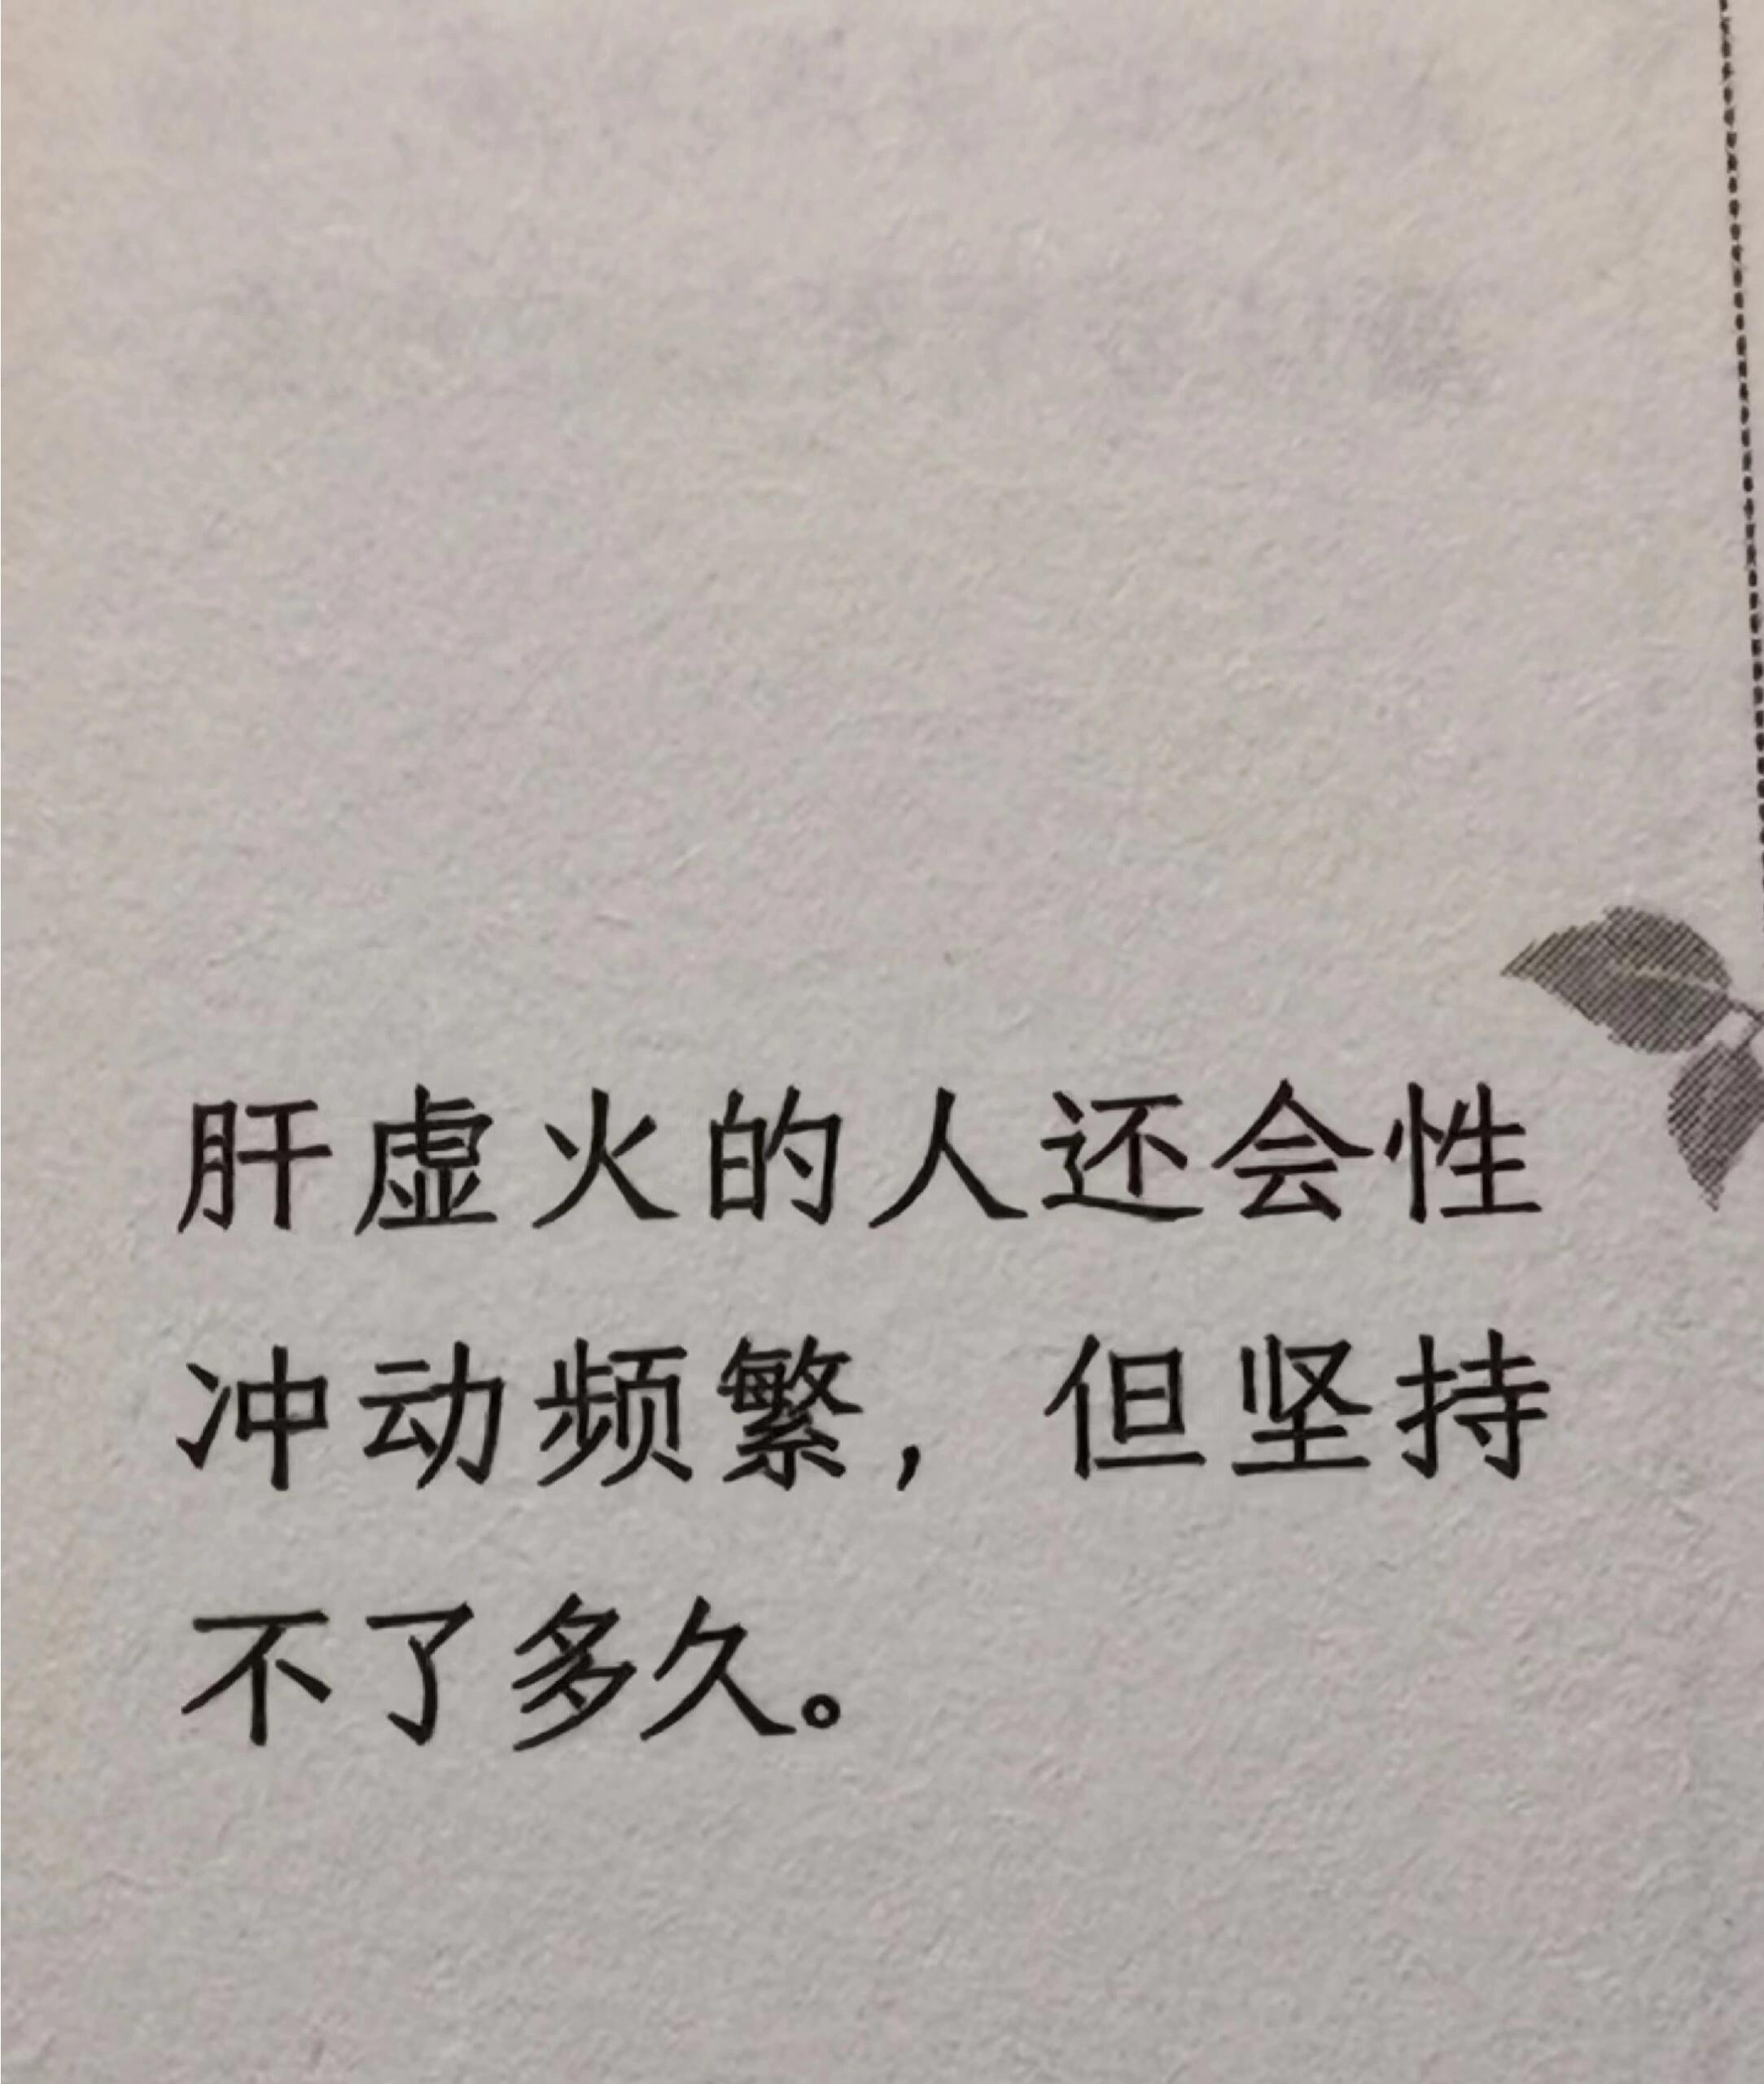 肝虚火的人还会性
冲动频繁，但坚持
不了多久。